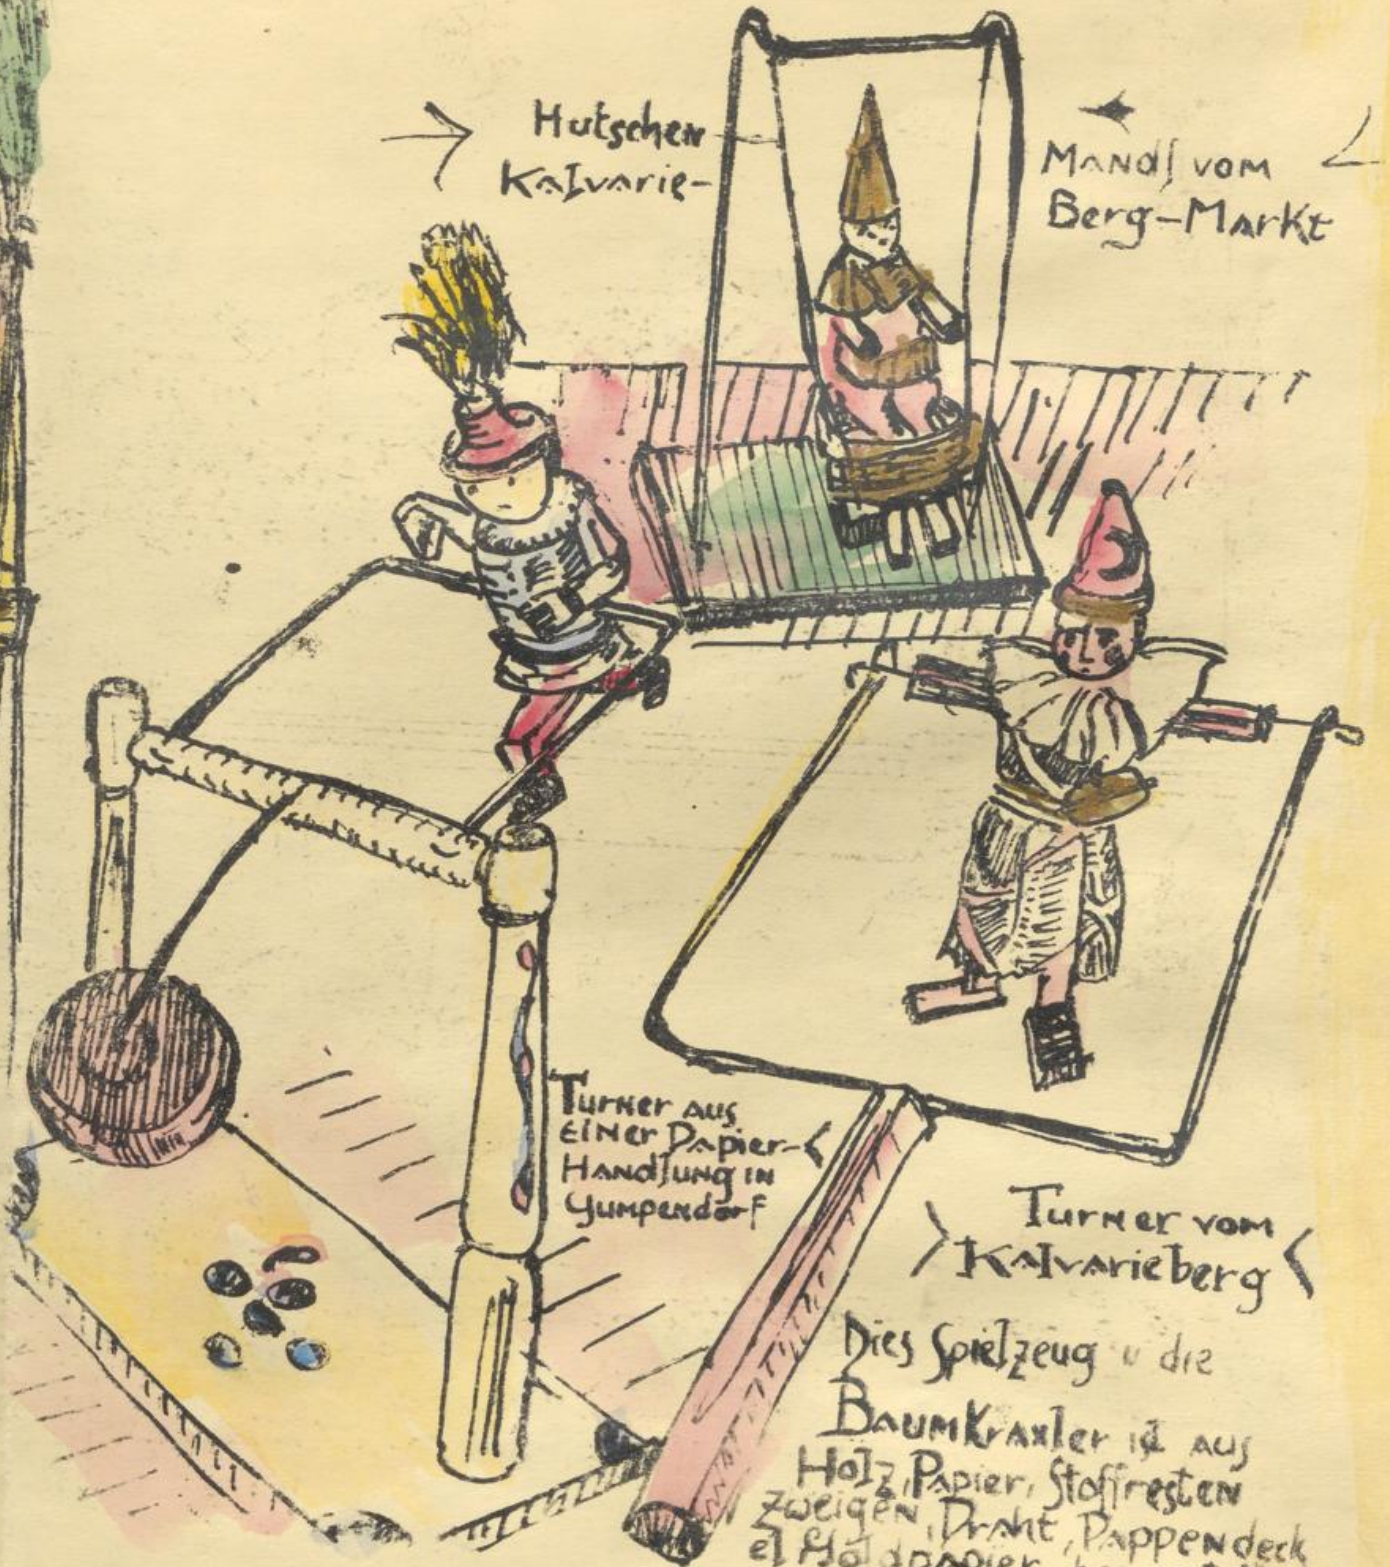 Hutschen
Kalvarie-
Mandl vom
Berg-Markt
Turner aus
einer Papier-
Handlung in
Gumpendorf
Turner vom
Kalvarieberg
Dies Spielzeug u die
Baumkraxler ist aus
Holz, Papier, Stoffresten
zweigen, Draht, Pappendeck
el Goldpapier